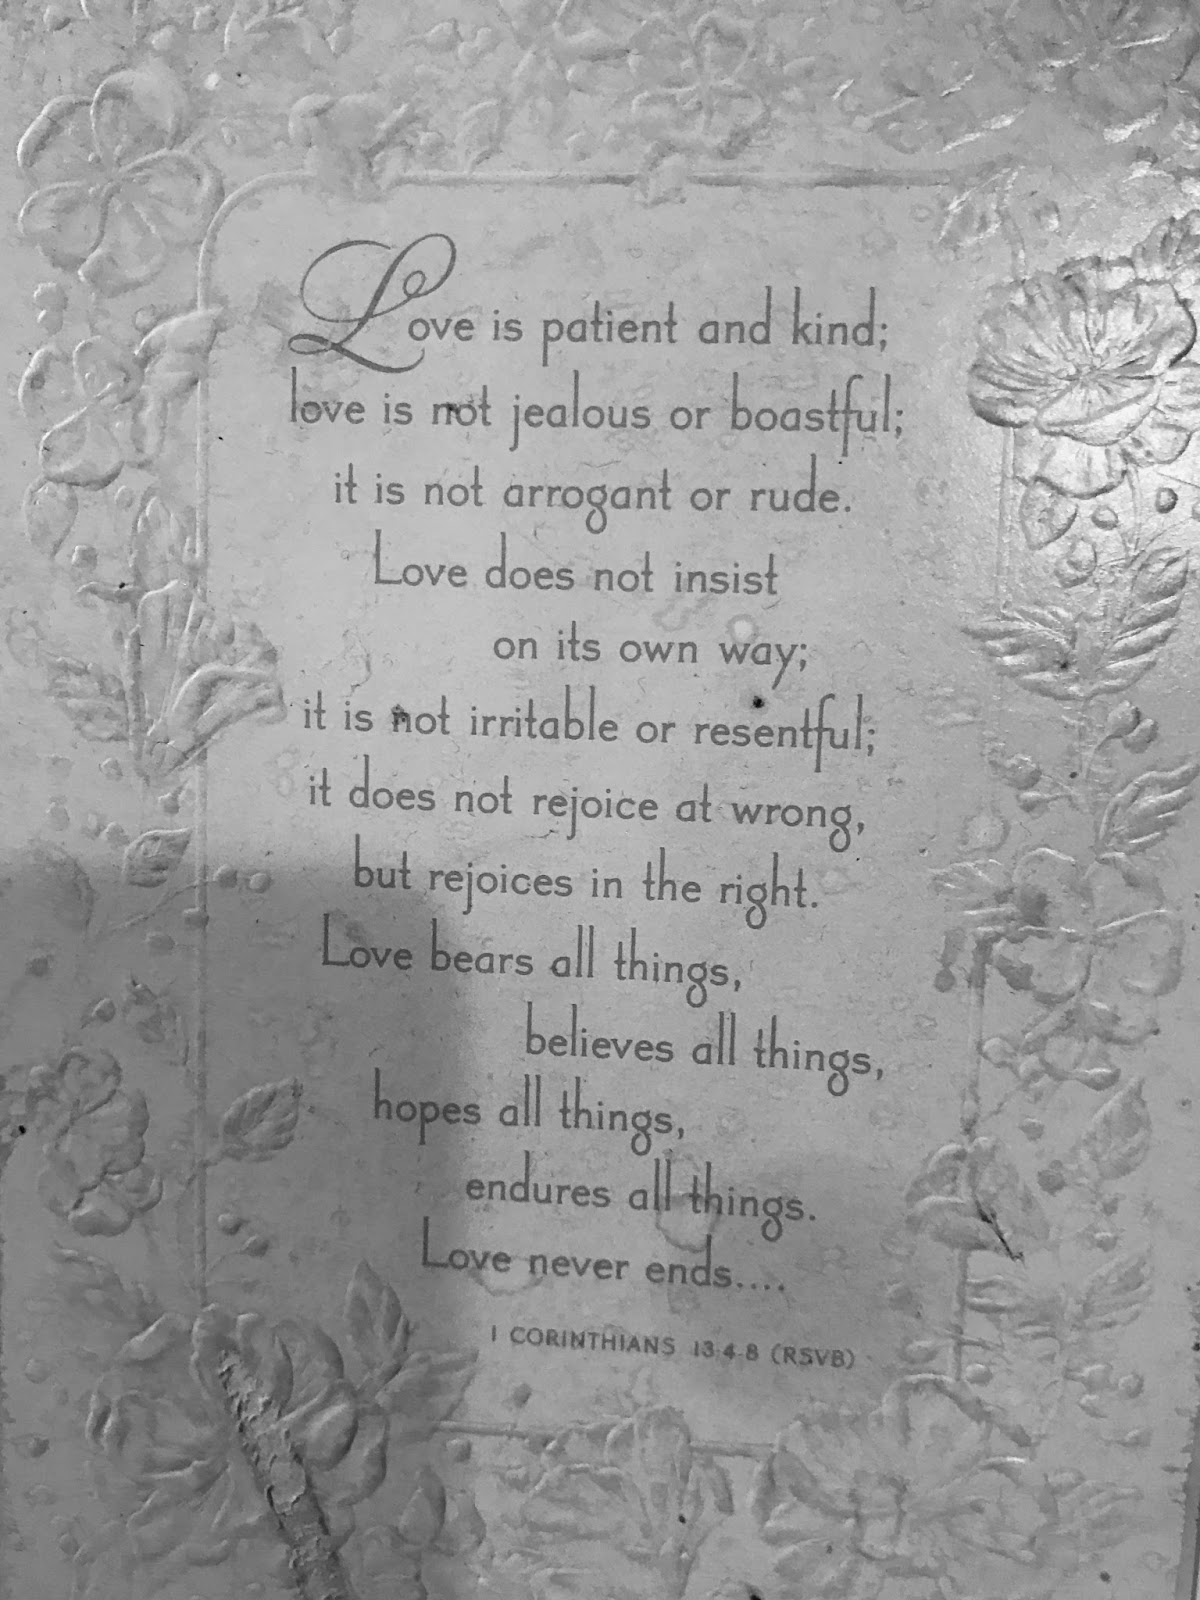 Love is patient and kind;
love is not jealous or boastful;
it is not arrogant or rude.
Love does not insist
on its own way;
it is not irritable or resentful;
it does not rejoice at wrong,
but rejoices in the right.
Love bears all things,
believes all things,
hopes all things,
endures all things.
Love never ends....
1 CORINTHIANS 13:4-8 (RSVB)